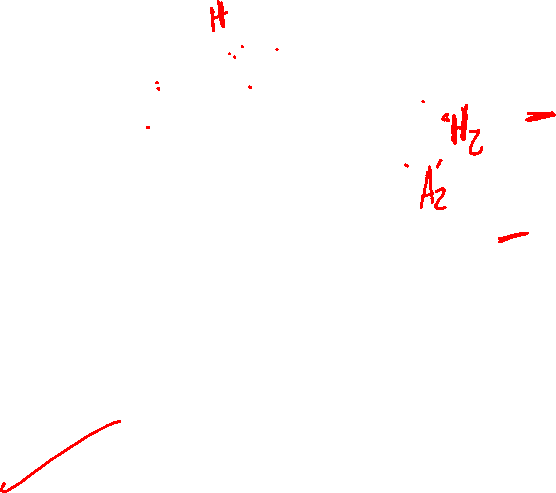 H
H2
A2